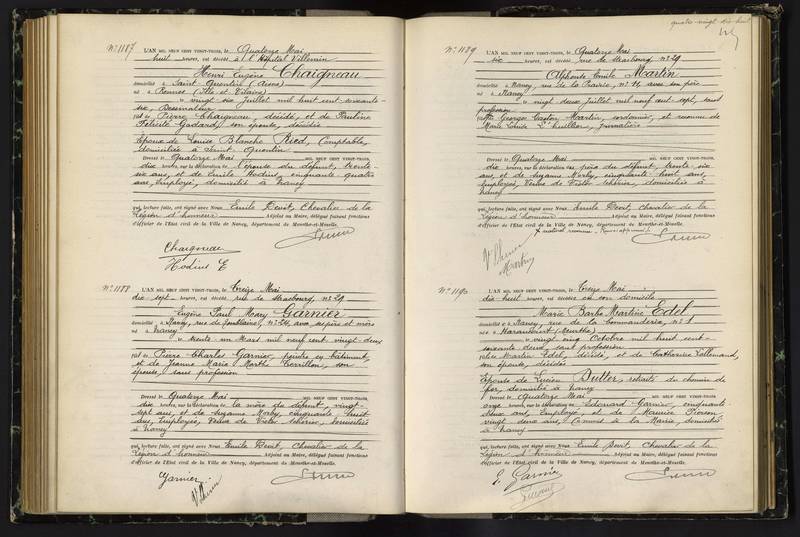 quatre-vingt dix huit
N° 1187
L'AN MIL NEUF CENT VINGT-TROIS, le Quatorze Mai
huit heures, est décédé à l'Hôpital Villemin
Henri Eugène Chaigneau
domicilié à Saint Quentin (Aisne)
né à Rennes (Ille et Vilaine)
le vingt six Juillet mil huit cent soixante-
six, Dessinateur
fils de Pierre Chaigneau, décédé, et de Pauline
Félicité Godard, son épouse, décédée
Epoux de Louise Blanche Ried, Comptable,
domiciliée à Saint Quentin
Dressé le Quatorze Mai MIL NEUF CENT VINGT-TROIS,
dix heures, sur la déclaration de l'épouse du défunt, trente
six ans, et de Emile Hodius, cinquante quatre
ans, Employé, domicilié à Nancy
qui, lecture faite, ont signé avec Nous Emile Devit, Chevalier de la
Légion d'honneur Adjoint au Maire, délégué faisant fonctions
d'officier de l'Etat civil de la Ville de Nancy, département de Meurthe-et-Moselle.
Chaigneau
Hodius E
N° 1188
L'AN MIL NEUF CENT VINGT-TROIS, le Treize Mai
dix-sept heures, est décédé rue de Strasbourg, n° 29
Eugène Paul Mary Garnier
domicilié à Nancy, rue de n° 24, avec ses père et mère
né à Nancy
le trente un Mars mil neuf cent vingt deux
fils de Pierre Charles Garnier, peintre en bâtiment,
et de Jeanne Marie Marthe son
épouse, sans profession
Dressé le Quatorze Mai MIL NEUF CENT VINGT-TROIS,
dix heures, sur la déclaration de la mère du défunt, vingt-
sept ans, et de Suzanne cinquante huit
ans, Employée, Veuve de Victor domiciliée
à Nancy
qui, lecture faite, ont signé avec Nous Emile Devit, Chevalier de la
Légion d'honneur Adjoint au Maire, délégué faisant fonctions
d'officier de l'Etat civil de la Ville de Nancy, département de Meurthe-et-Moselle.
Garnier
N° 1189
L'AN MIL NEUF CENT VINGT-TROIS, le Quatorze Mai
six heures, est décédé rue de Strasbourg n° 29
Alphonse Emile Martin
domicilié à Nancy, rue de la Prairie, n° 14, avec son père
né à Nancy
le vingt deux Juillet mil neuf cent sept, sans
profession
fils de Georges Gaston Martin, cordonnier, et reconnu de
Marie Louise L'huillier, journalière
Dressé le Quatorze Mai MIL NEUF CENT VINGT-TROIS,
dix heures, sur la déclaration du père du défunt, trente six
ans, et de Suzanne cinquante-huit ans,
Employée, Veuve de Victor domiciliés à
Nancy
qui, lecture faite, ont signé avec Nous Emile Devit, Chevalier de la
Légion d'honneur Adjoint au Maire, délégué faisant fonctions
d'officier de l'Etat civil de la Ville de Nancy, département de Meurthe-et-Moselle.
x naturel reconnu
Martin
N° 1190
L'AN MIL NEUF CENT VINGT-TROIS, le Treize Mai
dix-huit heures, est décédée en son domicile
Marie Barbe Martine Edel
domiciliée à Nancy, rue de la Commanderie, n° 1
née à Haraucourt (Meurthe)
le vingt cinq Octobre mil huit cent-
soixante deux, sans profession
fille Martin Edel, décédé, et de Catherine Lallemand,
son épouse, décédée
Epouse de Lucien Dutter, retraité du chemin de
fer, domicilié à Nancy
Dressé le Quatorze Mai MIL NEUF CENT VINGT-TROIS,
onze heures, sur la déclaration de Edouard Garnier, cinquante
deux ans, Employé, et de Maurice
vingt deux ans, Commis à la Mairie, domiciliés
à Nancy
qui, lecture faite, ont signé avec Nous Emile Devit, Chevalier de la
Légion d'honneur Adjoint au Maire, délégué faisant fonctions
d'officier de l'Etat civil de la Ville de Nancy, département de Meurthe-et-Moselle.
E. Garnier